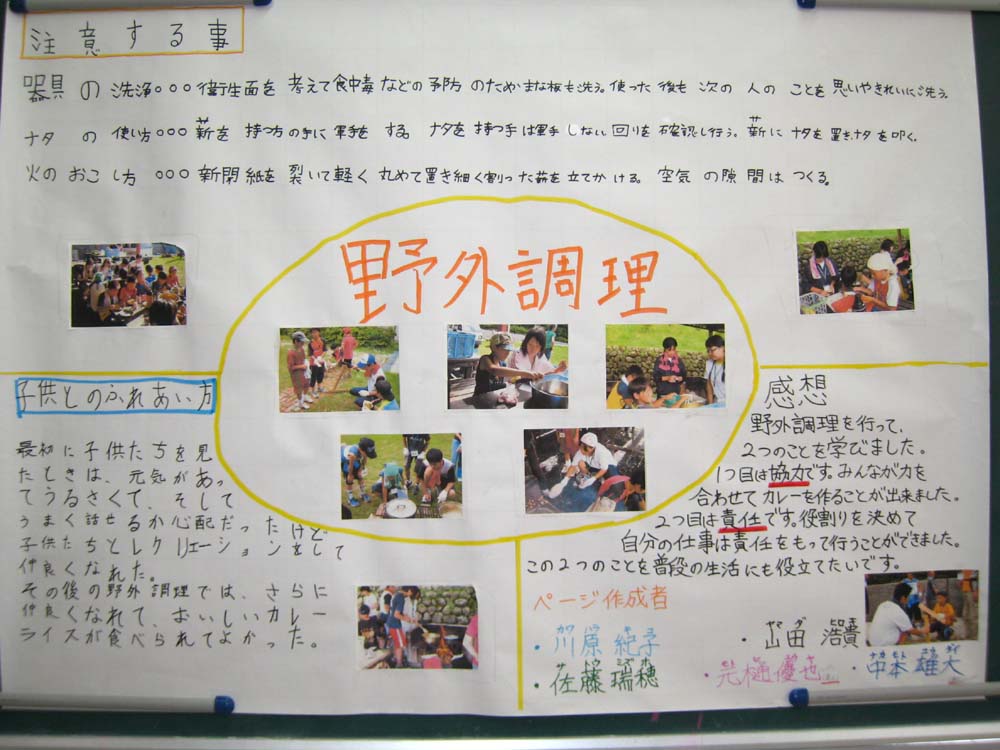 注意する事
器具の洗浄○○○衛生面を考えて食中毒などの予防のためかまな板も洗う。使った後も次の人のことを思いやきれいに洗う
ナタの使い方○○○薪を持つ方の手に軍手をする ナタを持つ手は軍手しない回りを確認し行う。薪にナタを置きナタを叩く。
火のおこし方○○○新聞紙を裂いて軽く丸めて置き細く割った薪を立てかける。空気の隙間はつくる。
野外調理
子供とのふれあい方
最初に子供たちを見
たときは、元気があっ
てうるさくて、そして
うまく話せるか心配だったけど
子供たちとレクリエーションをして
仲良くなれた。
その後の野外調理では、さらに
仲良くなれて、おいしいカレー
ライスが食べられてよかった。
感想
野外調理を行って、
2つのことを学びました。
1つ目は協力です。みんなが力を
合わせてカレーを作ることが出来ました。
2つ目は責任です。役割りを決めて
自分の仕事は責任をもって行うことができました。
この2つのことを普段の生活にも役立てたいです。
ページ作成者
・川原 紀子
・山田 浩貴
・佐藤 瑞穂
・光樋優也
・中本 雄大